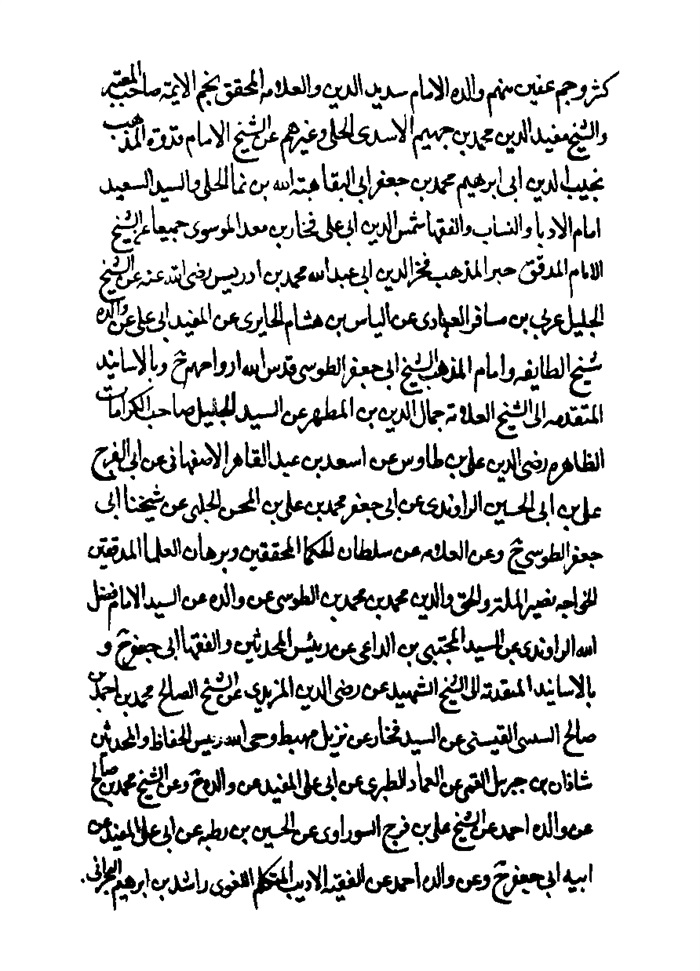 كثر وجم عفير منهم والده الامام سديد الدين والعلامه المحقق نجم الايمه صاحب المعتبر
والشيخ مفيد الدين محمد بن جهيم الاسدى الحلى وغيرهم عن الشيخ الامام قدوة المذهب
نجيب الدين ابى ابرهيم محمد بن جعفر ابى البقا هبة الله بن نما الحلى والسيد السعيد
امام الادبا والنساب والفقها شمس الدين ابى على فخار بن معد الموسوى جميعا عن الشيخ
الامام المدقق حبر المذهب فخر الدين ابى عبد الله محمد بن ادريس رضى الله عنه عن الشيخ
الجليل عربى بن مسافر العبادى عن الياس بن هشام الحايرى عن المفيد ابى على عن والده
شيخ الطايفه وامام المذهب الشيخ ابى جعفر الطوسى قدس الله ارواحهم ح وبالاسانيد
المتقدمه الى الشيخ العلامة جمال الدين بن المطهر عن السيد الجليل صاحب الكرامات
الظاهره رضى الدين على بن طاوس عن اسعد بن عبد القاهر الاصفهانى عن ابى الفرج
على بن ابى الحسين الراوندى عن ابى جعفر محمد بن على بن المحسن الحلبى عن شيخنا ابى
جعفر الطوسى ح وعن العلامه عن سلطان الحكما المحققين وبرهان العلما المدققين
الخواجه نصير الملة والحق والدين محمد بن محمد بن الطوسى عن والده عن السيد الامام فضل
الله الراوندى عن السيد المجتبى بن الداعى عن رئيس المحدثين والفقها ابى جعفر ح و
بالاسانيد المتقدمة الى الشيخ الشهيد عن رضى الدين المزيدى عن الشيخ الصالح محمد بن احمد بن
صالح السيبى القيسنى عن السيد فخار عن نزيل مهبط وحى الله رييس الحفاظ والمحدثين
شاذان بن جبريل القمى عن العماد الطبرى عن ابى على المفيد عن والده ح وعن الشيخ محمد بن صالح
عن والده احمد عن الشيخ على بن فرج السوراوى عن الحسين بن رطبه عن ابى على المفيد عن
ابيه ابى جعفر ح وعن والده احمد عن الفقيه الاديب المتكلم اللغوى راشد بن ابرهيم البحرانى.